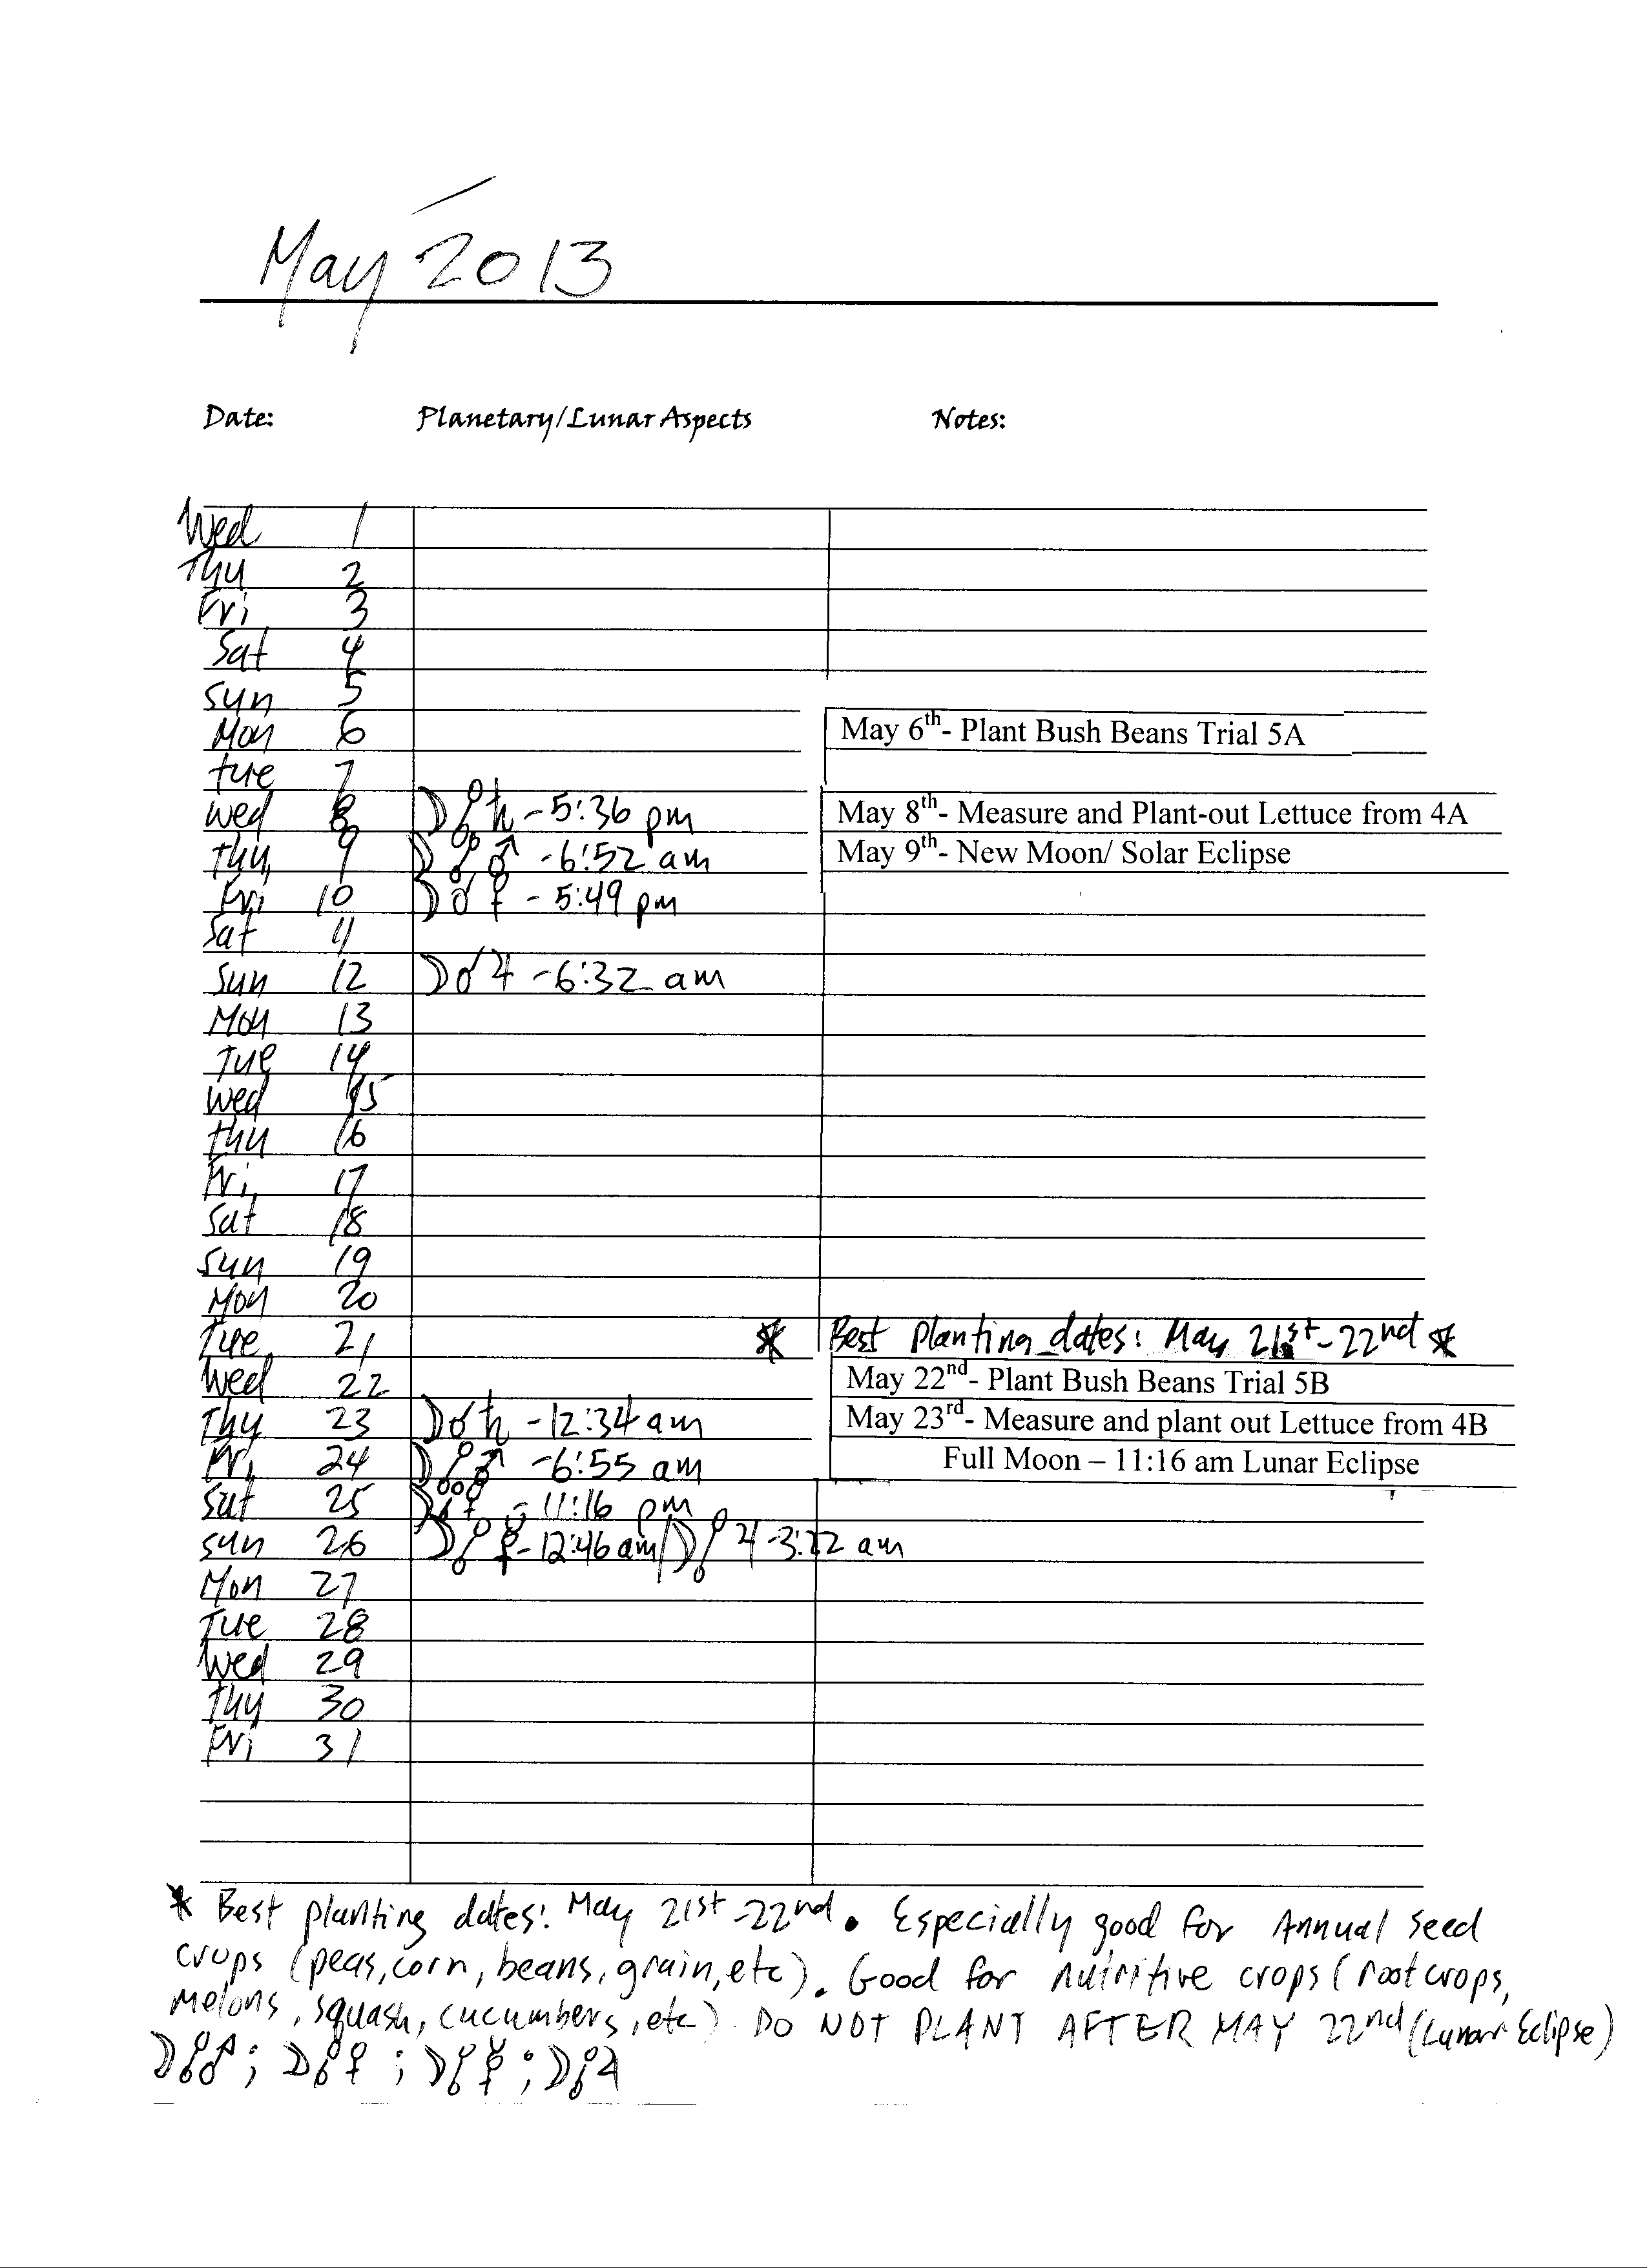 May 2013
Date: Planetary/Lunar Aspects Notes:
Wed 1
Thu 2
Fri 3
Sat 4
Sun 5
Mon 6 May 6th- Plant Bush Beans Trial 5A
Tue 7
Wed 8 ☽☍♄ - 5:36 pm May 8th- Measure and Plant-out Lettuce from 4A
Thu 9 ☽☍♂ - 6:52 am May 9th- New Moon/ Solar Eclipse
Fri 10 ☽☌♀ - 5:49 pm
Sat 11
Sun 12 ☽☌♃ - 6:32 am
Mon 13
Tue 14
Wed 15
Thu 16
Fri 17
Sat 18
Sun 19
Mon 20
Tue 21 * Best planting dates: May 21st - 22nd *
Wed 22 May 22nd- Plant Bush Beans Trial 5B
Thu 23 ☽☌♄ - 12:34 am May 23rd- Measure and plant out Lettuce from 4B
Fri 24 ☽☍♂ - 6:55 am Full Moon – 11:16 am Lunar Eclipse
Sat 25 ☽☍♀ - 11:16 pm
Sun 26 ☽☍☿ - 12:46 am/☽☍♃ - 3:22 am
Mon 27
Tue 28
Wed 29
Thu 30
Fri 31
* Best planting dates: May 21st - 22nd. Especially good for Annual seed
crops (peas, corn, beans, grain, etc). Good for nutritive crops (root crops,
Melons, squash, cucumbers, etc). DO NOT PLANT AFTER MAY 22nd (Lunar Eclipse)
☽☍♂; ☽☍♀; ☽☍☿; ☽☍♃